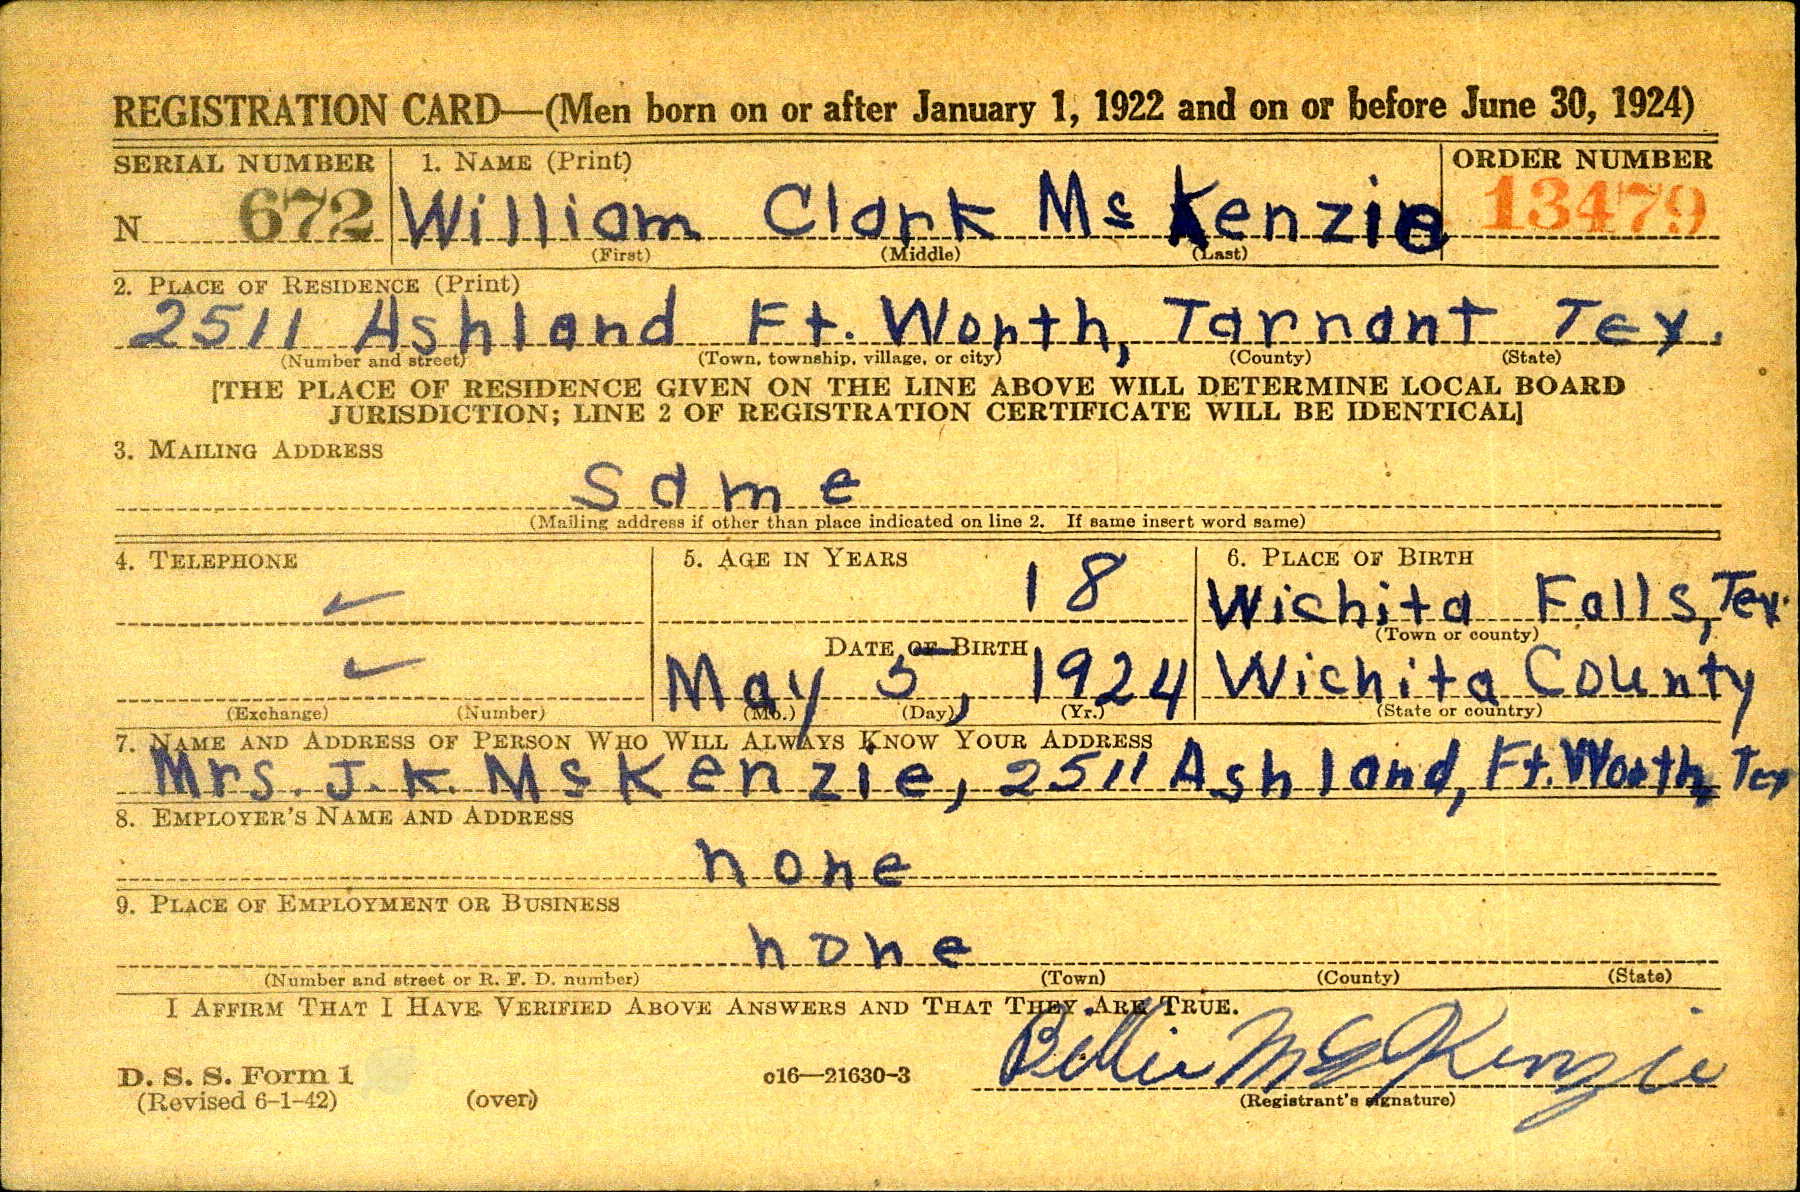 REGISTRATION CARD—(Men born on or after January 1, 1922 and on or before June 30, 1924)
SERIAL NUMBER 1. NAME (Print) ORDER NUMBER
N 672 William Clark Mc Kenzie 13479
(First) (Middle) (Last)
2. PLACE OF RESIDENCE (Print)
2511 Ashland Ft. Worth, Tarrant Tex.
(Number and street) (Town, township, village, or city) (County) (State)
[THE PLACE OF RESIDENCE GIVEN ON THE LINE ABOVE WILL DETERMINE LOCAL BOARD
JURISDICTION; LINE 2 OF REGISTRATION CERTIFICATE WILL BE IDENTICAL]
3. MAILING ADDRESS
Same
(Mailing address if other than place indicated on line 2. If same insert word same)
4. TELEPHONE 5. AGE IN YEARS 6. PLACE OF BIRTH
✓ 18 Wichita Falls, Tex.
(Town or county)
DATE OF BIRTH
✓ May 5, 1924 Wichita County
(Exchange) (Number) (Mo.) (Day) (Yr.) (State or country)
7. NAME AND ADDRESS OF PERSON WHO WILL ALWAYS KNOW YOUR ADDRESS
Mrs. J. K. McKenzie, 2511 Ashland, Ft. Worth, Tex
8. EMPLOYER'S NAME AND ADDRESS
none
9. PLACE OF EMPLOYMENT OR BUSINESS
none
(Number and street or R. F. D. number) (Town) (County) (State)
I AFFIRM THAT I HAVE VERIFIED ABOVE ANSWERS AND THAT THEY ARE TRUE.
Billie McKenzie
D. S. S. Form 1 c16—21630-3
(Revised 6-1-42) (over) (Registrant's signature)